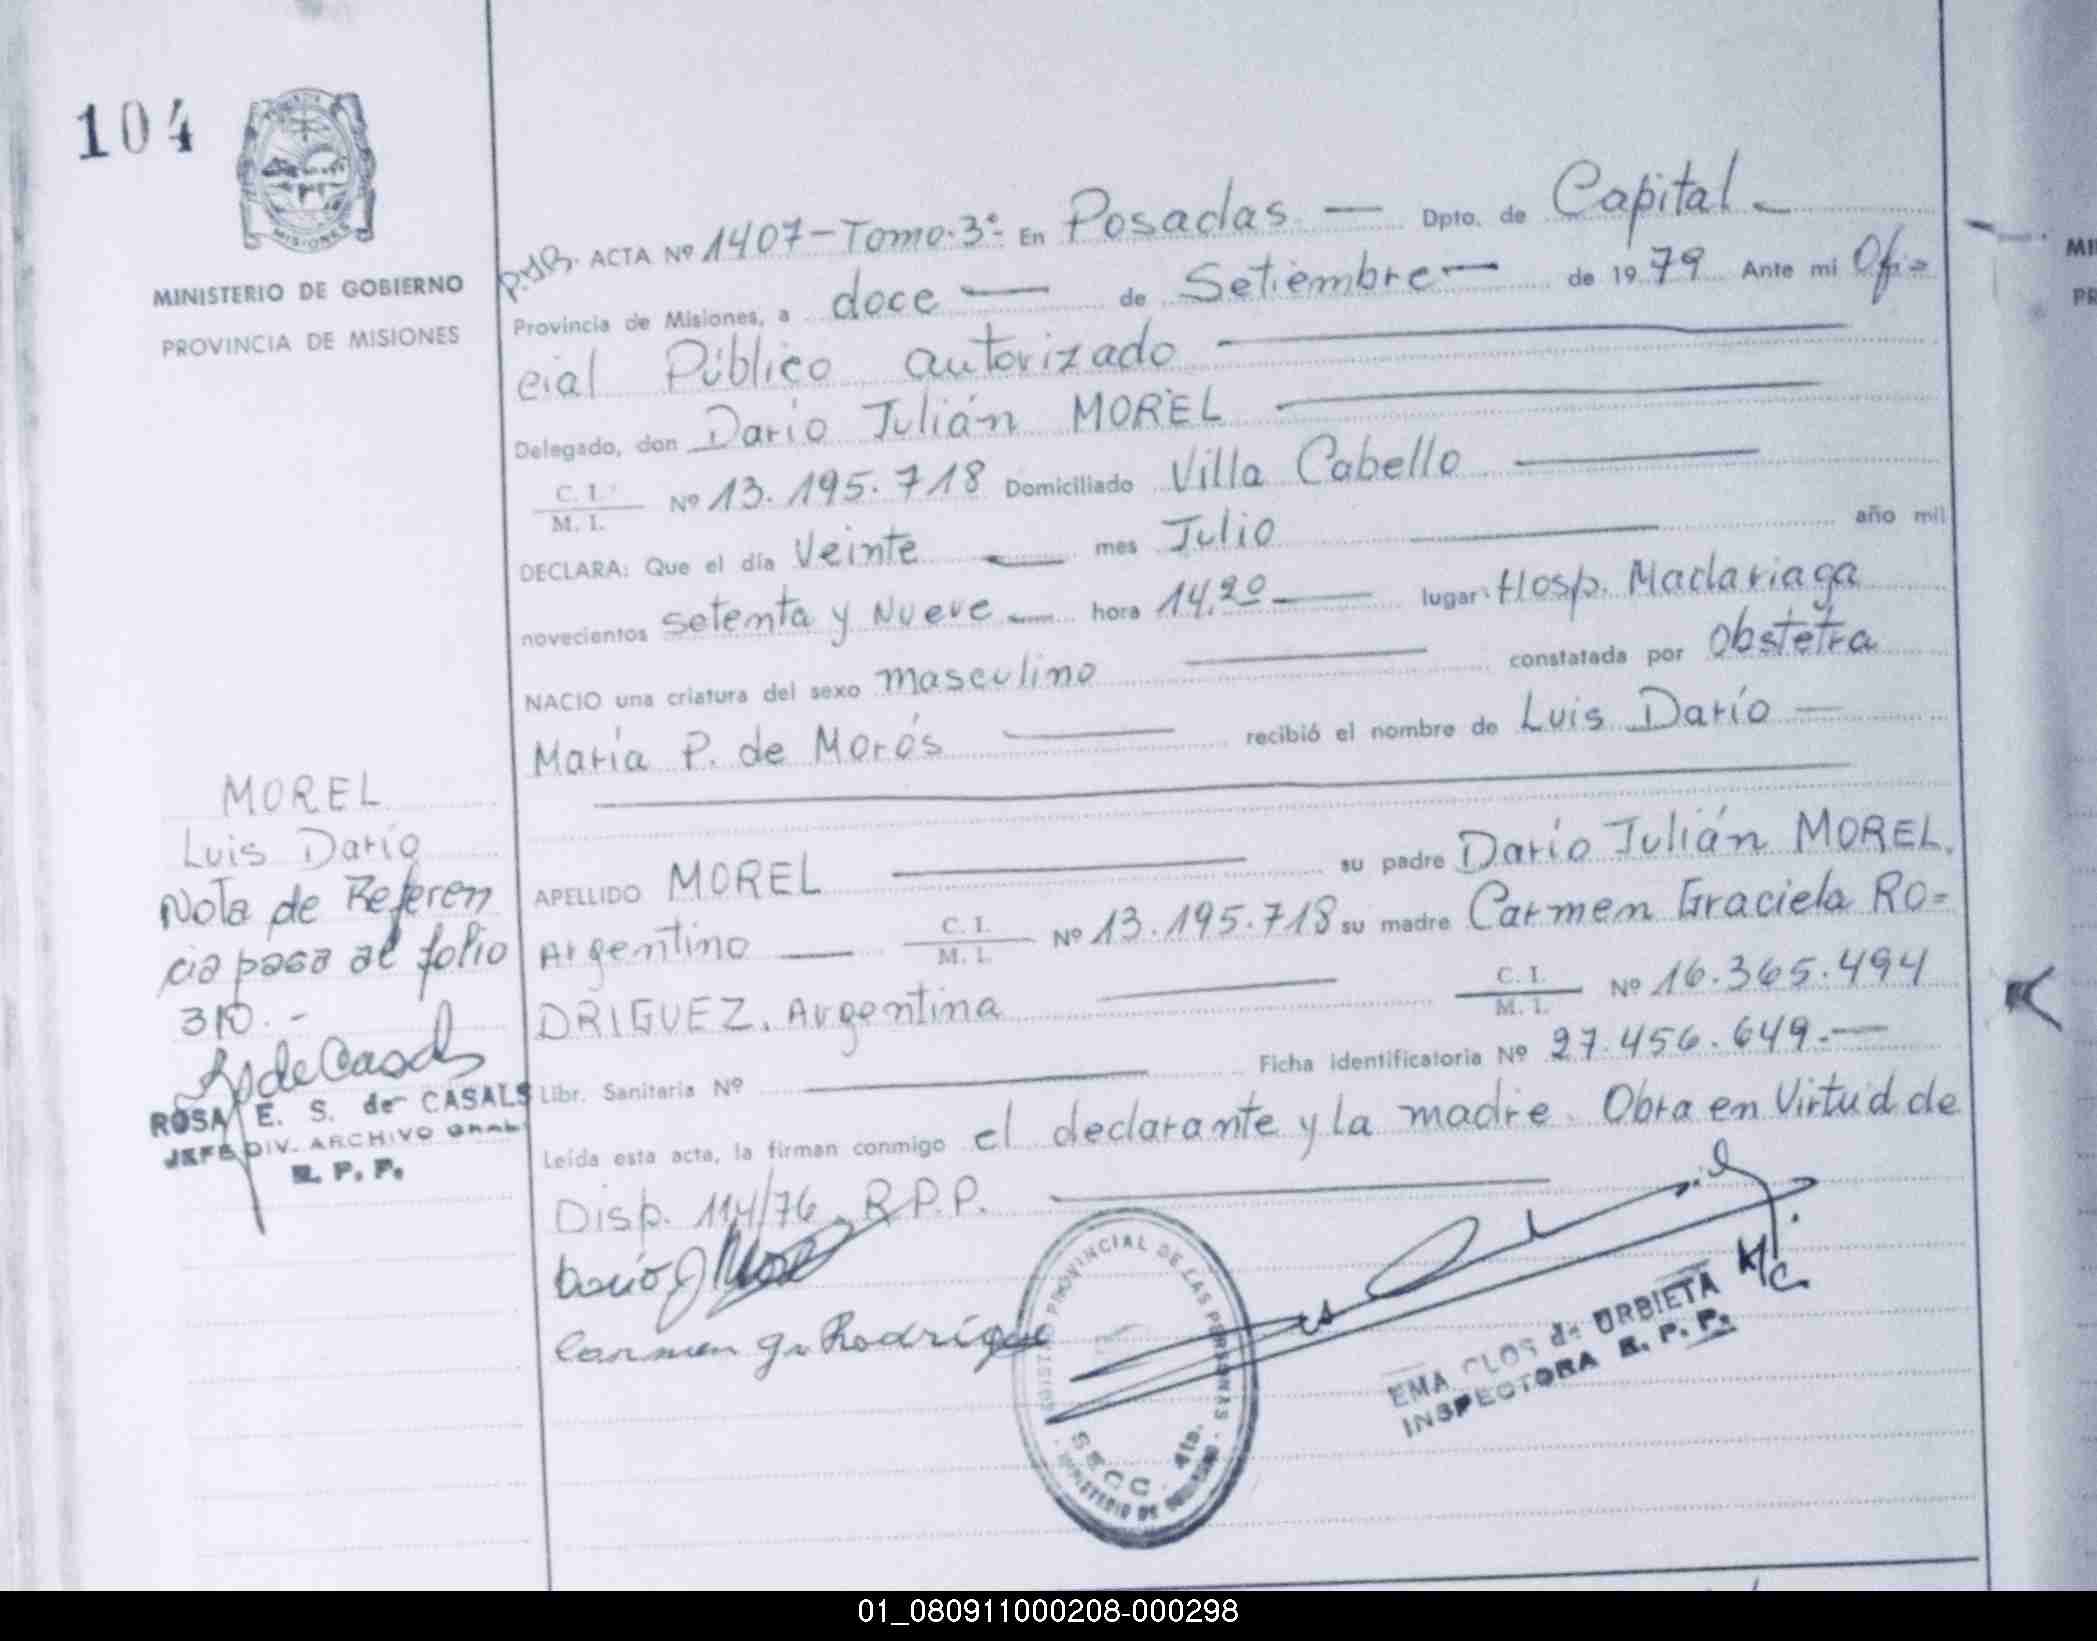 104
MISIONES
MINISTERIO DE GOBIERNO
PROVINCIA DE MISIONES
ACTA Nº 1407-Tomo-3º- En Posadas — Dpto. de Capital -
Provincia de Misiones, a doce — de Setiembre — de 1979 Ante mi Ofi=
cial Público autorizado —
Delegado, don Darío Julián MOREL —
C. I. / M. I. Nº 13.195.718 Domiciliado Villa Cabello —
DECLARA: Que el día Veinte — mes Julio — año mil
novecientos setenta y Nueve — hora 14.20 — lugar Hosp. Madariaga
NACIO una criatura del sexo masculino — constatada por Obstetra
María P. de Morós — recibió el nombre de Luis Darío —
APELLIDO MOREL — su padre Darío Julián MOREL.
Argentino — C. I. / M. I. Nº 13.195.718 su madre Carmen Graciela RO=
DRIGUEZ, Argentina — C. I. / M. I. Nº 16.365.494
Libr. Sanitaria Nº — Ficha identificatoria Nº 27.456.649.-
Leída esta acta, la firman conmigo el declarante y la madre. Obra en Virtud de
Disp. 114/76. R.P.P. —
Darío J
Carmen G. Rodríguez
MOREL
Luis Darío
Nota de Referen
cia pasa al folio
310.-
ROSA E. S. de CASALS
JEFE DIV. ARCHIVO GRAL.
R. P. P.
REGISTRO PROVINCIAL DE LAS PERSONAS
SECC. 4ta.
MINISTERIO DE GOBIERNO
EMA CLOS de URBIETA
INSPECTORA R. P. P.
MI
PR
01_080911000208-000298